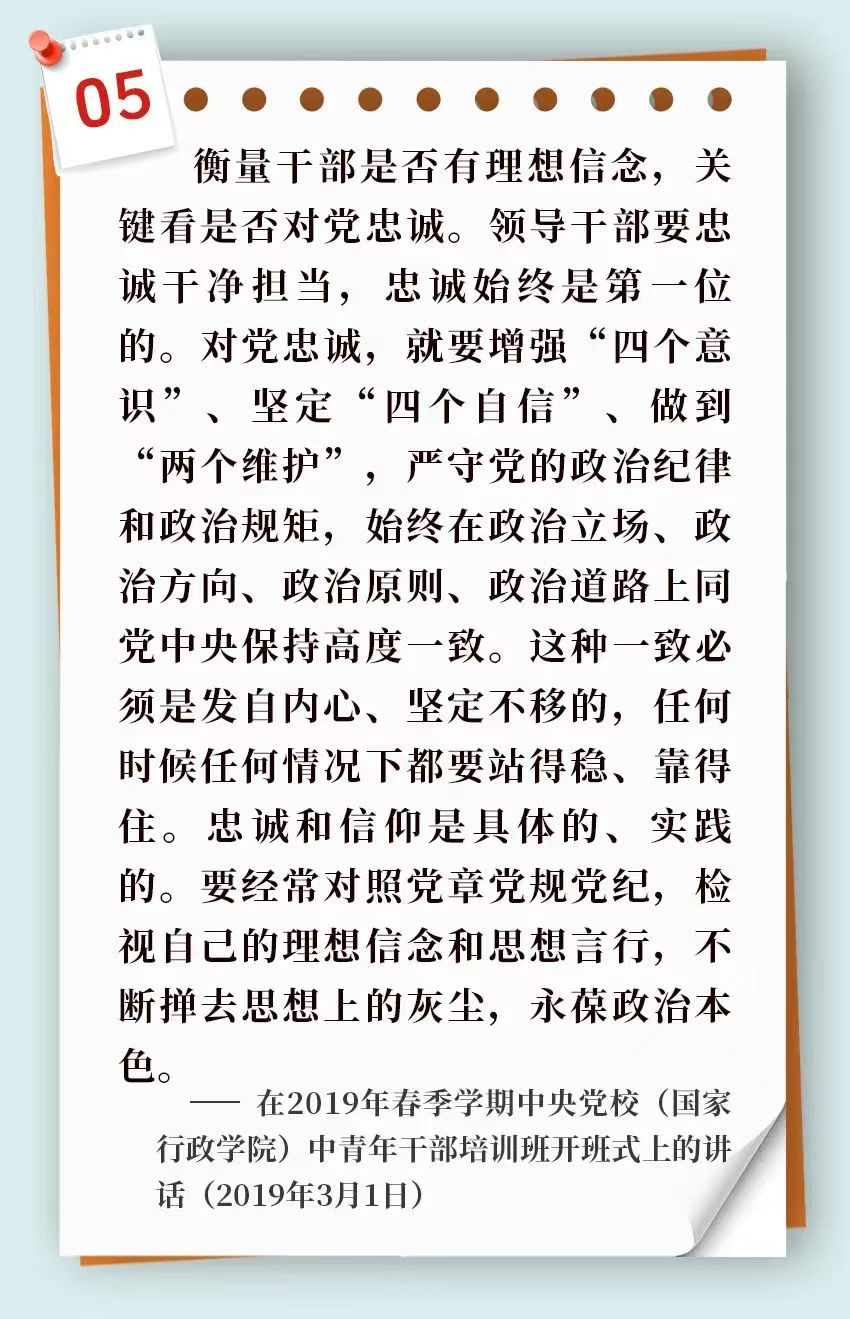 05
衡量干部是否有理想信念，关
键看是否对党忠诚。领导干部要忠
诚干净担当，忠诚始终是第一位
的。对党忠诚，就要增强“四个意
识”、坚定“四个自信”、做到
“两个维护”，严守党的政治纪律
和政治规矩，始终在政治立场、政
治方向、政治原则、政治道路上同
党中央保持高度一致。这种一致必
须是发自内心、坚定不移的，任何
时候任何情况下都要站得稳、靠得
住。忠诚和信仰是具体的、实践
的。要经常对照党章党规党纪，检
视自己的理想信念和思想言行，不
断掸去思想上的灰尘，永葆政治本
色。
—— 在2019年春季学期中央党校（国家
行政学院）中青年干部培训班开班式上的讲
话（2019年3月1日）